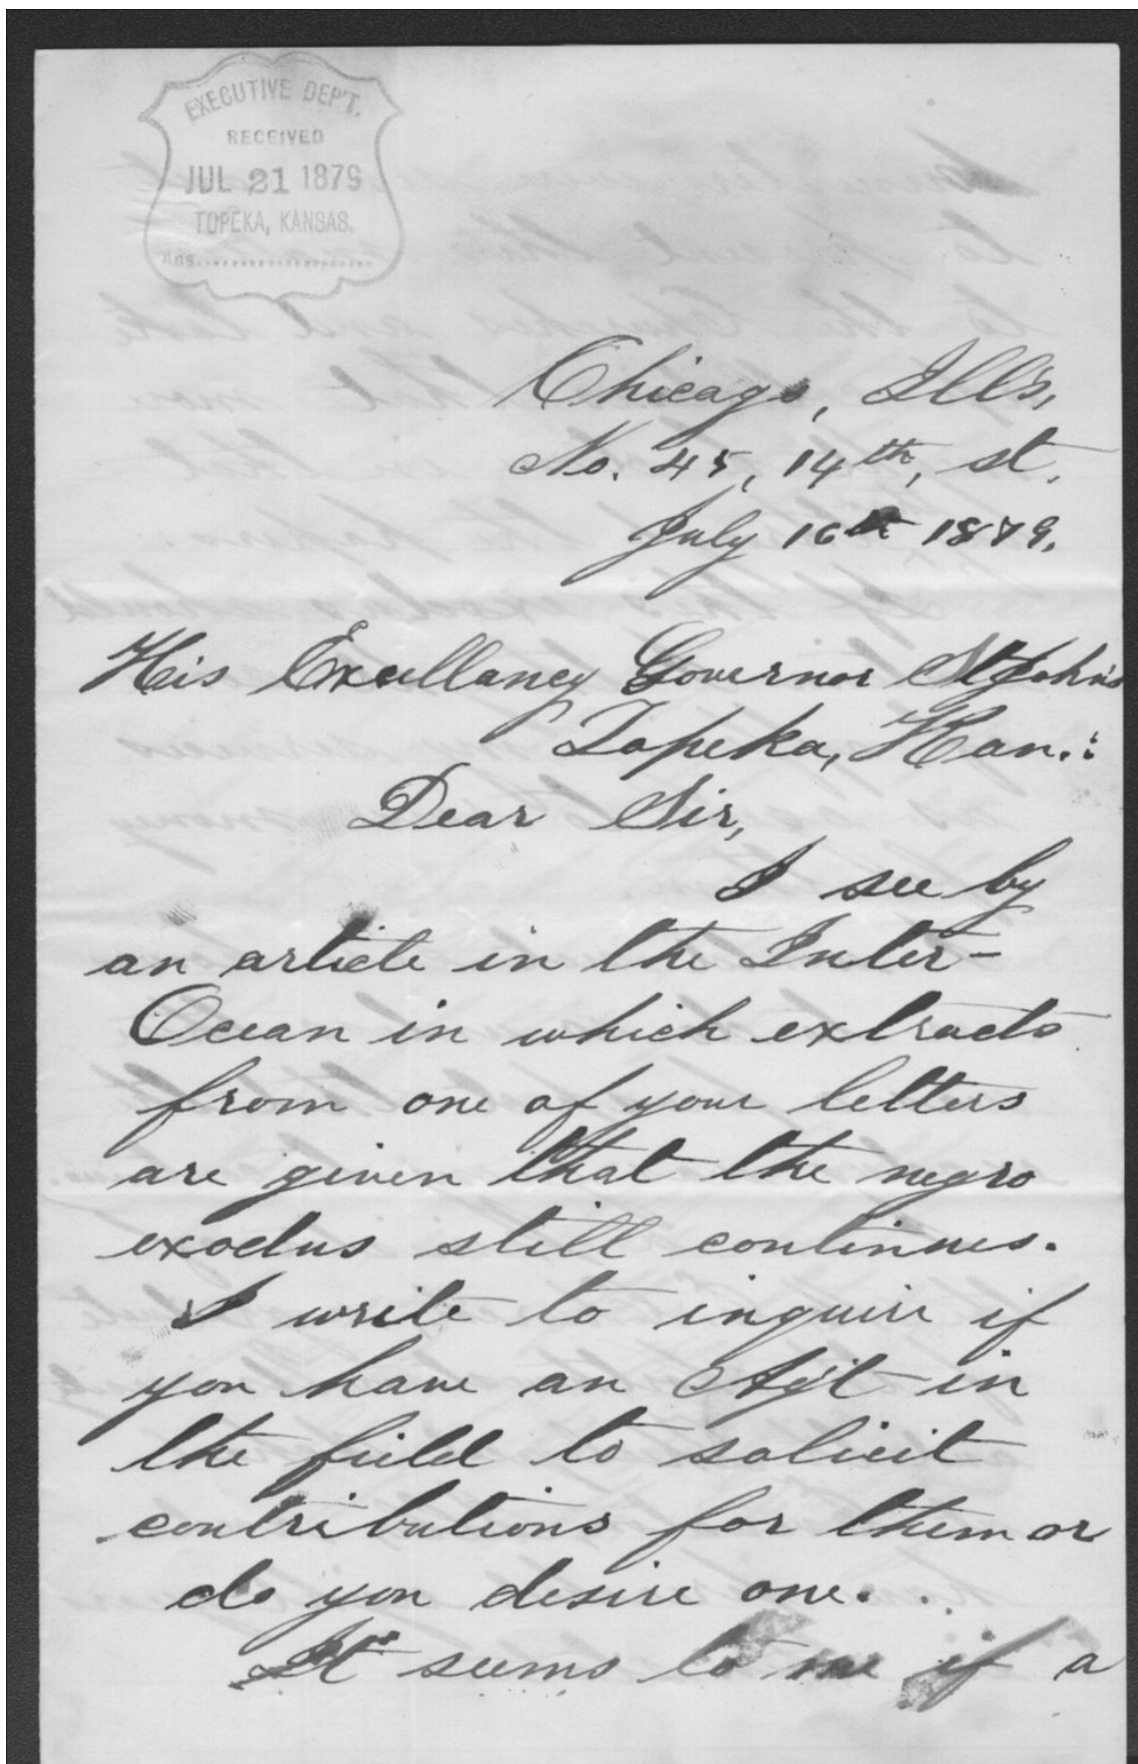 EXECUTIVE DEP'T.
RECEIVED
JUL 21 1879
TOPEKA, KANSAS.
Ans......................
Chicago, Ill's,
No. 45, 14th, st,
July 16th 1879.
His Excellancy Governor St John's
Topeka, Kan.:
Dear Sir,
I see by
an article in the Inter-
Ocean in which extracts
from one of your letters
are given that the negro
exodus still continues.
I write to inquire if
you have an Ag't in
the field to solicit
contributions for them or
do you desire one.
It seems to me if a